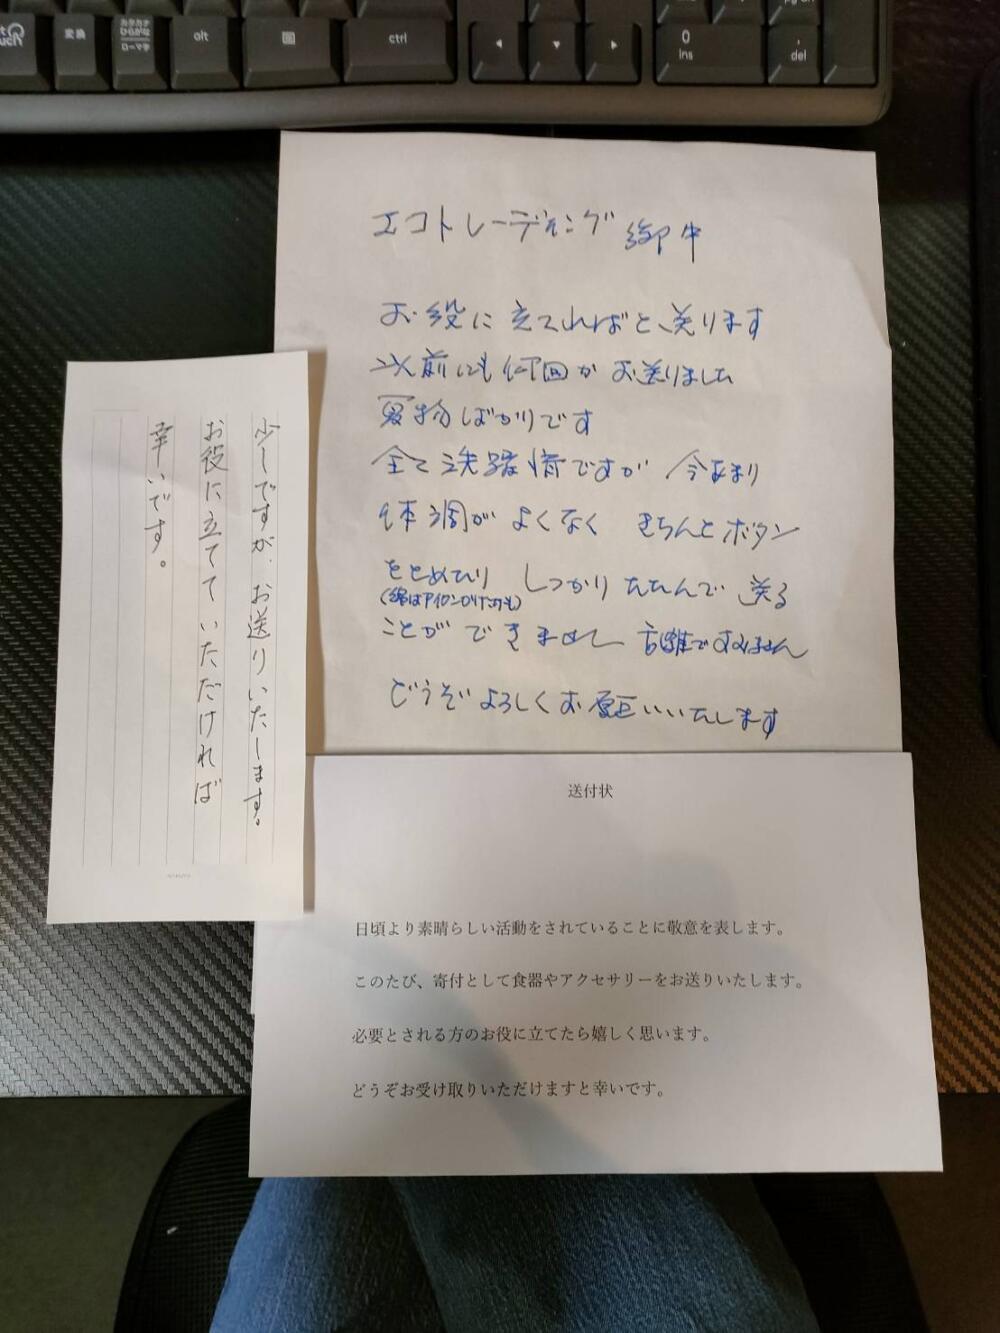 変換
カタカナ
ひらがな
ローマ字
alt
ctrl
0
ins
.
del
エコトレーディング 御中
お役に立てればと、送ります
以前にも何回かお送りました
夏物ばかりです
全て洗濯済ですが 今あまり
体調がよくなく きちんとボタン
をとめたり しっかりたたんで 送る
(綿はアイロンかけたけど)
ことができません すみません
どうぞよろしくお願いいたします
少しですが、お送りいたします。
お役に立てていただければ
幸いです。
送付状
日頃より素晴らしい活動をされていることに敬意を表します。
このたび、寄付として食器やアクセサリーをお送りいたします。
必要とされる方のお役に立てたら嬉しく思います。
どうぞお受け取りいただけますと幸いです。